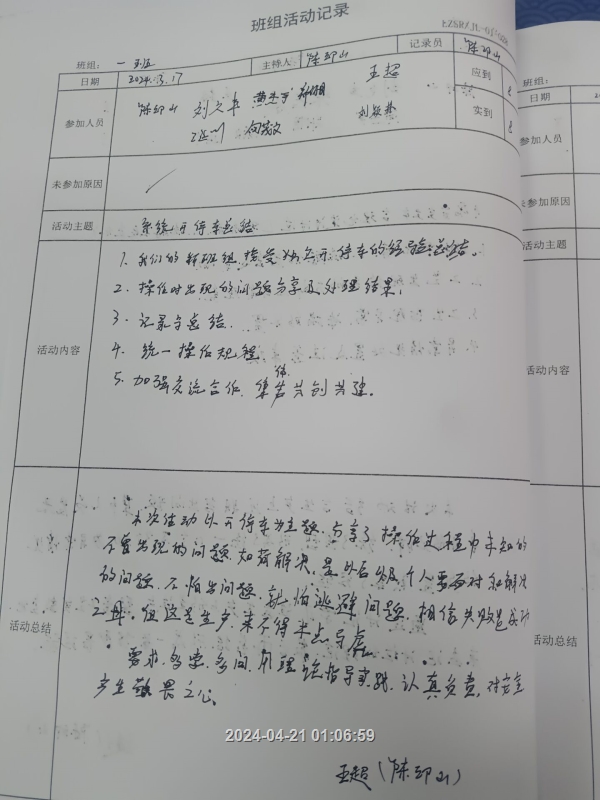 班组活动记录
EZSR/JL
班组: 一 班组:
日期 2024.3.17 主持人 陈印山 记录员 陈印山 日期
参加人员 陈印山 刘 王超 应到 参加人员
实到
未参加原因 未参加原因
活动主题 系统开停车总结 活动主题
活动内容 1. 我们的 班组 开停车的经验总结。 活动内容
2. 操作时出现的问题分享及处理结果,
3. 记录与总结.
4. 统一操作规程.
5. 加强交流合作, 集体 共创共建。
活动总结 本次活动以开停车为主题, 分享了操作过程中未知的 活动总结
不曾出现的问题, 如何解决, 是 个人要面对和解决
的问题. 不怕出问题, 就怕逃避问题. 相信失败是成功
之母. 但这是生产来不得半点马虎.
要求, 多 多问, 用理论指导实践, 认真负责, 对安全
产生敬畏之心。
王超 (陈印山)
2024-04-21 01:06:59